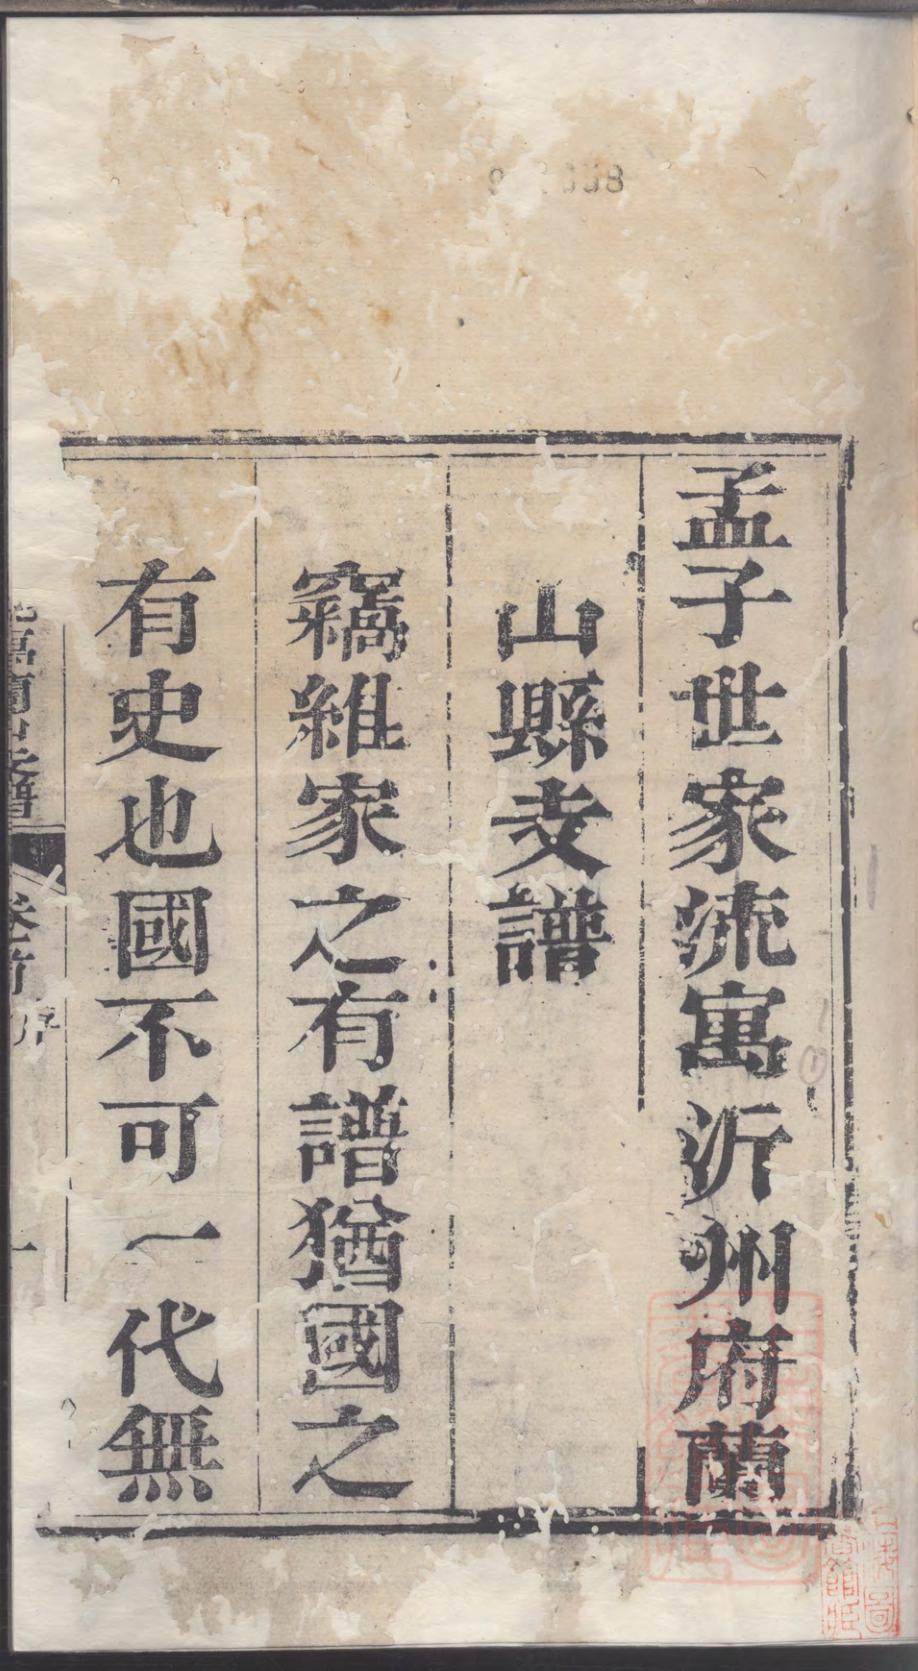 孟子世家流寓沂州府蘭
山縣支譜
竊維家之有譜猶國之
有史也國不可一代無
寓蘭山支譜
卷首
序
一